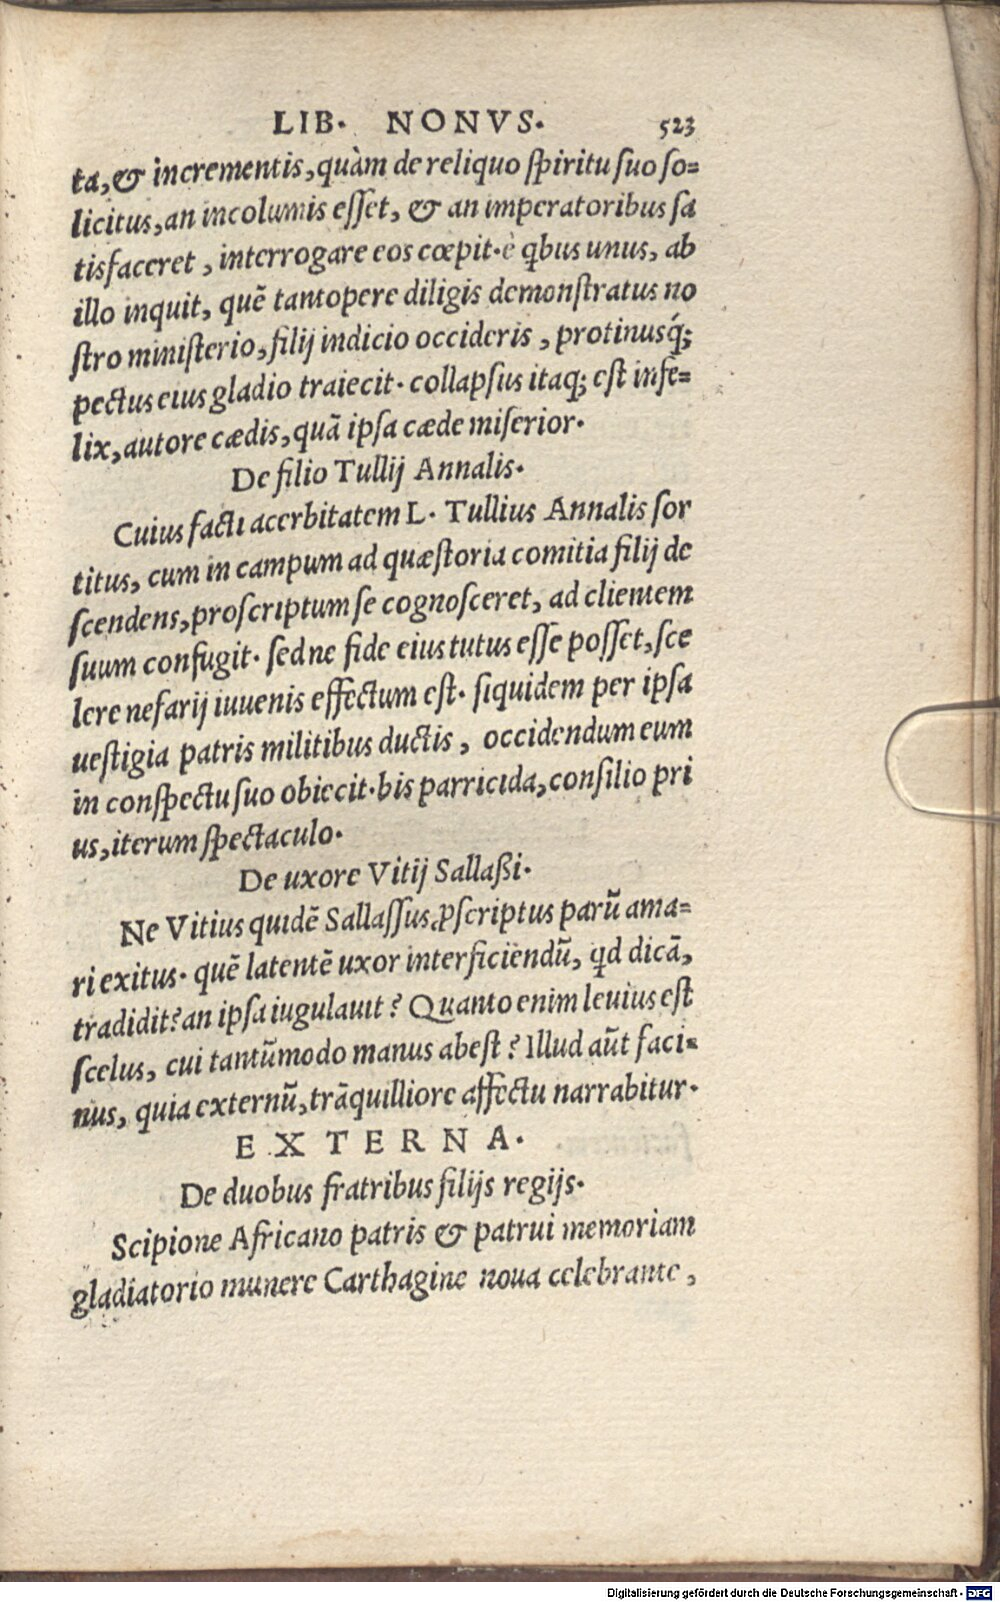 LIB. NONVS. 523
ta, & incrementis, quàm de reliquo spiritu suo so=
licitus, an incolumis esset, & an imperatoribus sa
tisfaceret, interrogare eos cœpit. è qbus unus, ab
illo inquit, quē tantopere diligis demonstratus no
stro ministerio, filij indicio occideris, protinusq́;
pectus eius gladio traiecit. collapsus itaq; est infe=
lix, autore cædis, quā ipsa cæde miserior.
De filio Tullij Annalis.
Cuius facti acerbitatem L. Tullius Annalis sor
titus, cum in campum ad quæstoria comitia filij de
scendens, proscriptum se cognosceret, ad clientem
suum confugit. sed ne fide eius tutus esse posset, sce
lere nefarij iuuenis effectum est. siquidem per ipsa
uestigia patris militibus ductis, occidendum eum
in conspectu suo obiecit. bis parricida, consilio pri
us, iterum spectaculo.
De uxore Vitij Sallaßi.
Ne Vitius quidē Sallassus ꝓscriptus parū ama=
ri exitus. quē latentē uxor interficiendū, qd dicā,
tradidit? an ipsa iugulauit? Quanto enim leuius est
scelus, cui tantūmodo manus abest? Illud aūt faci=
nus, quia externū, trāquilliore affectu narrabitur.
EXTERNA.
De duobus fratribus filijs regijs.
Scipione Africano patris & patrui memoriam
gladiatorio munere Carthagine noua celebrante,
Digitalisierung gefördert durch die Deutsche Forschungsgemeinschaft - DFG